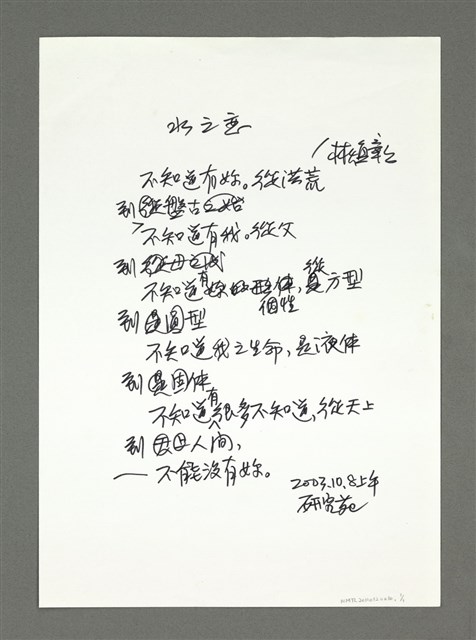 水之恋
/林煥彰
不知道有妳。從洪荒
到從盤古之始
不知道有我。從父
到從母之我
不知道有妳的形体,是從方型
個性
到是圓型
不知道我之生命,是液体
到是固体
不知道有很多不知道,從天上
到父母人間,
——不能沒有妳。
2003.10.8上午
研究苑